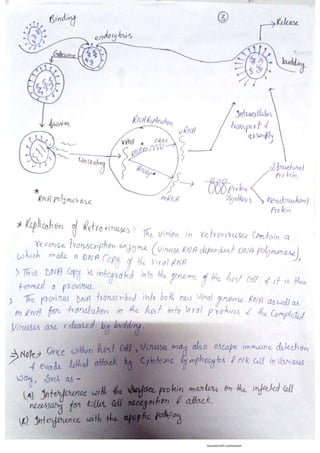 Binding
③
Release
endocytosis
budding
Endosome
fusion
RNA Replication
vRNA
cRNA
vRNA
Uncoating
mRNA
Intracellular
transport &
assembly
Structural
protein
Protein
Synthesis
Nonstructural
Protein
*
RNA polymerase
* Replication of Retroviruses: The virion in retroviruses contain a
reverse transcription enzyme (viruse RNA dependent DNA polymerase),
which make a DNA copy of the viral RNA
> This DNA copy is integrated into the genome of the host cell & it is then
termed a provirus.
> The provirus DNA transcribed into both new viral genomic RNA as well as
mRNA for translation in the host into viral proteins & the completed
viruses are released by budding.
=> Note → Once within host cell, viruses may also escape immune detection
& evade lethal attack by cytotoxic lymphocytes & NK cell in various
way, such as -
(A) Interference with the surface protein markers on the infected cell
necessary for killer cell recognition & attack.
(B) Interference with the apoptic pathway
Scanned with CamScanner